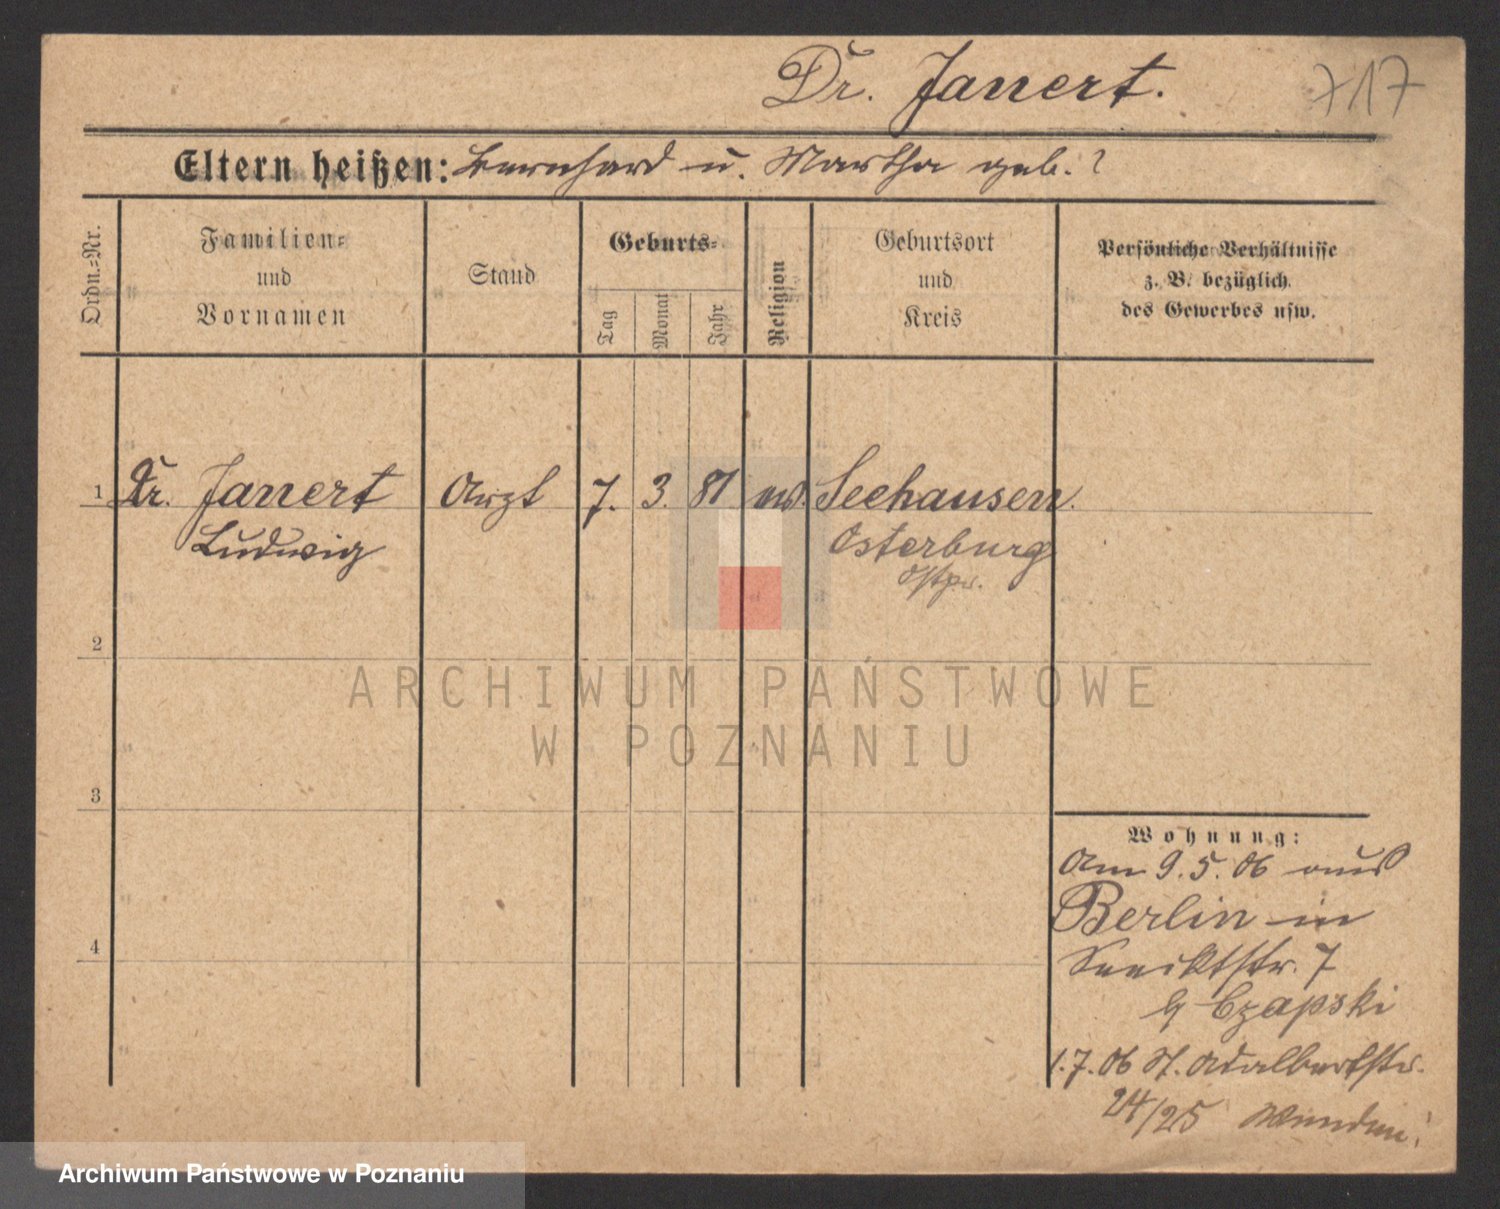 Dr. Janert.
717
Eltern heißen: Bernhard u. Martha geb. ?
Ordn.=Nr.
Familien=
und
Vornamen
Stand
Geburts=
Tag
Monat
Jahr
Religion
Geburtsort
und
Kreis
Persönliche Verhältnisse
z. B. bezüglich
des Gewerbes usw.
1 Dr. Janert Arzt 7. 3. 81 ev. Seehausen
Ludwig Osterburg
Ostpr.
2
3
4
Wohnung:
Am 9.5.06 aus
Berlin in
7
b/ Czapski
1.7.06 St. Adalbertstr.
24/25
ARCHIWUM PAŃSTWOWE
W POZNANIU
Archiwum Państwowe w Poznaniu